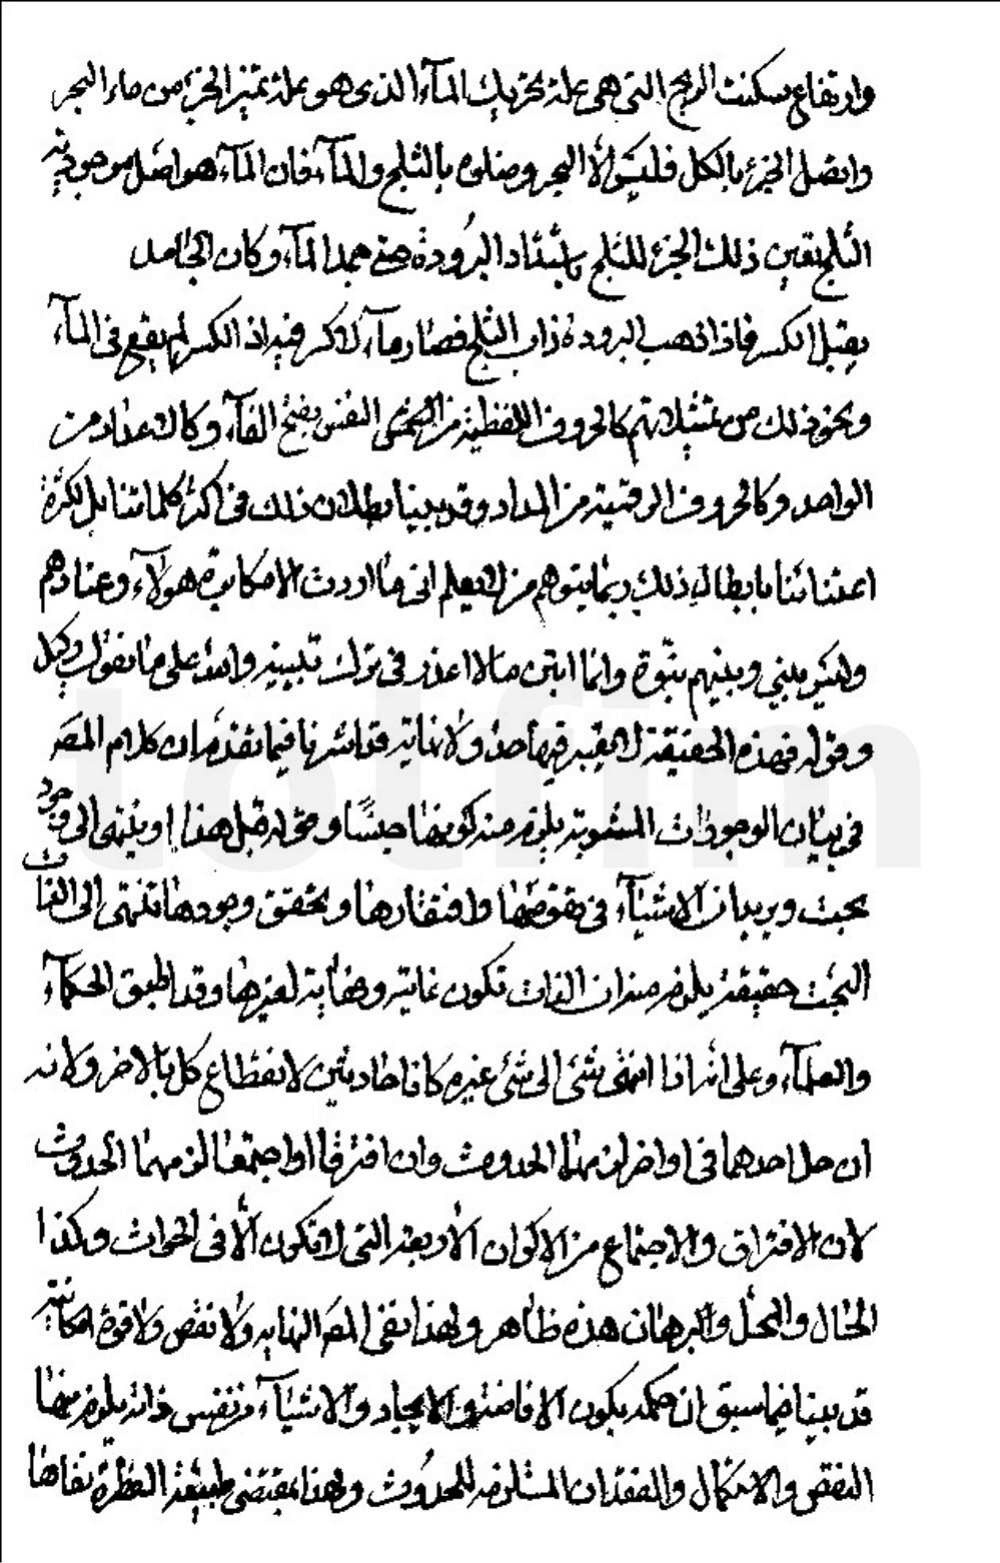 وارتفاع سكنت الريح التى هى علة تحريك المآء الذى هو علة تميز الجزء من ماء البحر
واتصل الجزء بالكل فليس الا البحر ومثلوه بالثلج والمآء فان المآء هو اصل موجودية
الثلج تعين ذلك الجزء للثلج باشتداد البرودة حتى جمد المآء وكان الجامد
يقبل الكسر فاذا ذهب البرودة ذاب الثلج فصار مآء لا كسر فيه اذ الكسر لم يقع فى المآء
ونحو ذلك من تمثيلاتهم كالحروف اللفظية من النفس بفتح الفآء وكالاعداد من
الواحد وكالحروف الرقمية من المداد وقد بينا بطلان ذلك فى اكثر كلماتنا بل لكثرة
اعتنائنا بابطال ذلك ربما يتوهم من لا يعلم انى ما اردت الا مكابرة هؤلآء وعنادهم
وليس بينى وبينهم نبوة وانما ابين ما لا اعذر فى ترك تبيينه والله على ما نقول وكيل
وقوله فهذه الحقيقة لا يعتبر فيها حد ولا نهاية قد اشرنا فيما تقدم ان كلام المص
فى بيان الوجودات المشوبة يلزم منه كونها حبسًا ونحو له قبل هذا او ينتهى الى وجود
بحت ويريد ان الاشيآء فى تقومها وافتقارها وتحقق وجودها تنتهى الى الذات
البحت حقيقة يلزم منه ان الذات تكون غاية ونهاية لغيرها وقد اطبق الحكمآء
والعلمآء وعلى انه اذا انتهى شئ الى شئ غيره كانا حادثين لانقطاع كل بالاخر ولانه
ان حل احدهما فى اواخر لزمهما الحدوث وان افترقا او اجتمعا لزمهما الحدوث
لان الافتراق والاجتماع من الاكوان الأربعة التى لا تكون الّا فى الحوادث وكذا
الحال والمحل والبرهان هذه ظاهر ولهذا نفى المص النهاية ولا نقص ولا قوة امكانية
قد بينا فيما سبق ان حكمه بكون الافاضة والايجاد والاشيآء من نفس ذاته يلزم منها
النقص والاستكمال والفقدان المستلزمة للحدوث ولهذا بمقتضى طبيعة الفطرة نفاها